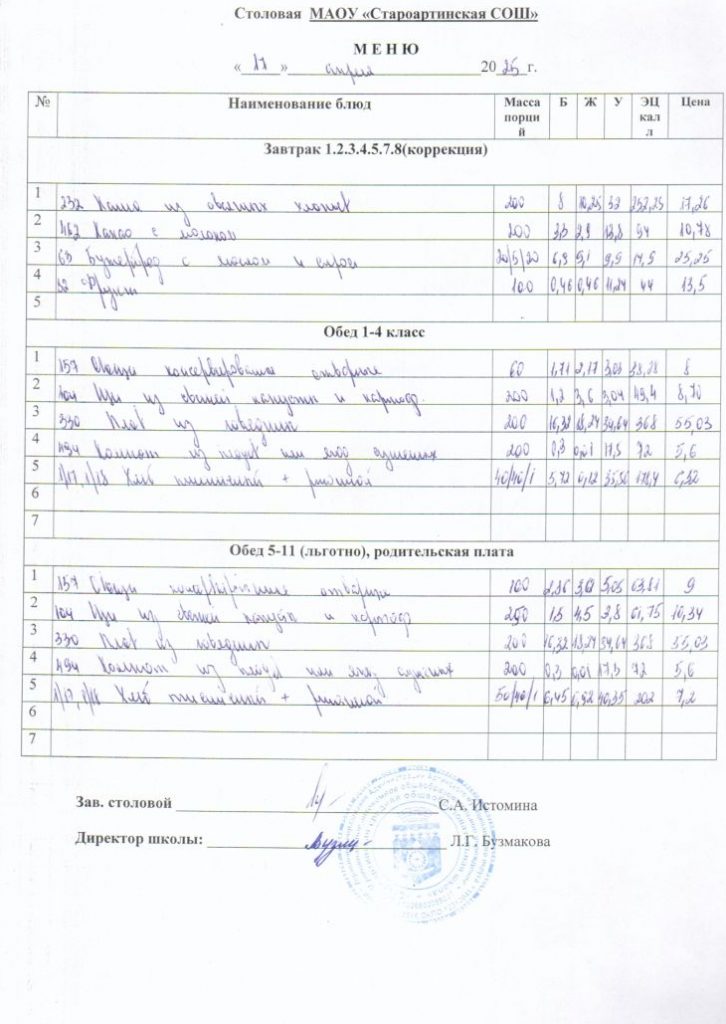 Столовая МАОУ «Староартинская СОШ»
МЕНЮ
« 17 » апреля 2025 г.
№ Наименование блюд Масса порций Б Ж У ЭЦ кал л Цена
Завтрак 1.2.3.4.5.7.8(коррекция)
1 232 Каша из овсяных хлопьев 200 8 10,25 32 252,25 17,26
2 462 Какао с молоком 200 3,3 2,9 13,8 94 10,78
3 63 Бутерброд с маслом и сыром 20/5/20 6,9 9,1 9,9 25,25
4 Фрукт 100 0,46 0,46 11,24 44 13,5
5
Обед 1-4 класс
1 157 Овощи консервированные отварные 60 1,71 2,17 3,03 38,28 8
2 104 Щи из свежей капусты и картоф. 200 1,2 3,6 3,04 49,4 8,70
3 330 Плов из говядины 200 16,32 18,24 34,64 368 55,03
4 494 Компот из плодов или ягод сушеных 200 0,3 0,01 17,5 72 5,6
5 1/17, 1/18 Хлеб пшеничный + ржаной 40/40/1 5,72 178,4 6,32
6
7
Обед 5-11 (льготно), родительская плата
1 157 Овощи консервированные отварные 100 2,86 5,05 63,81 9
2 104 Щи из свежей капусты и картоф 250 1,5 4,5 3,8 61,75 10,34
3 330 Плов из говядины 200 16,32 18,24 34,64 368 55,03
4 494 Компот из плодов или ягод сушеных 200 0,3 0,01 17,5 72 5,6
5 1/17, 1/18 Хлеб пшеничный + ржаной 50/40/1 6,45 0,92 40,35 202 7,2
6
7
Зав. столовой С.А. Истомина
Директор школы: Л.Г. Бузмакова